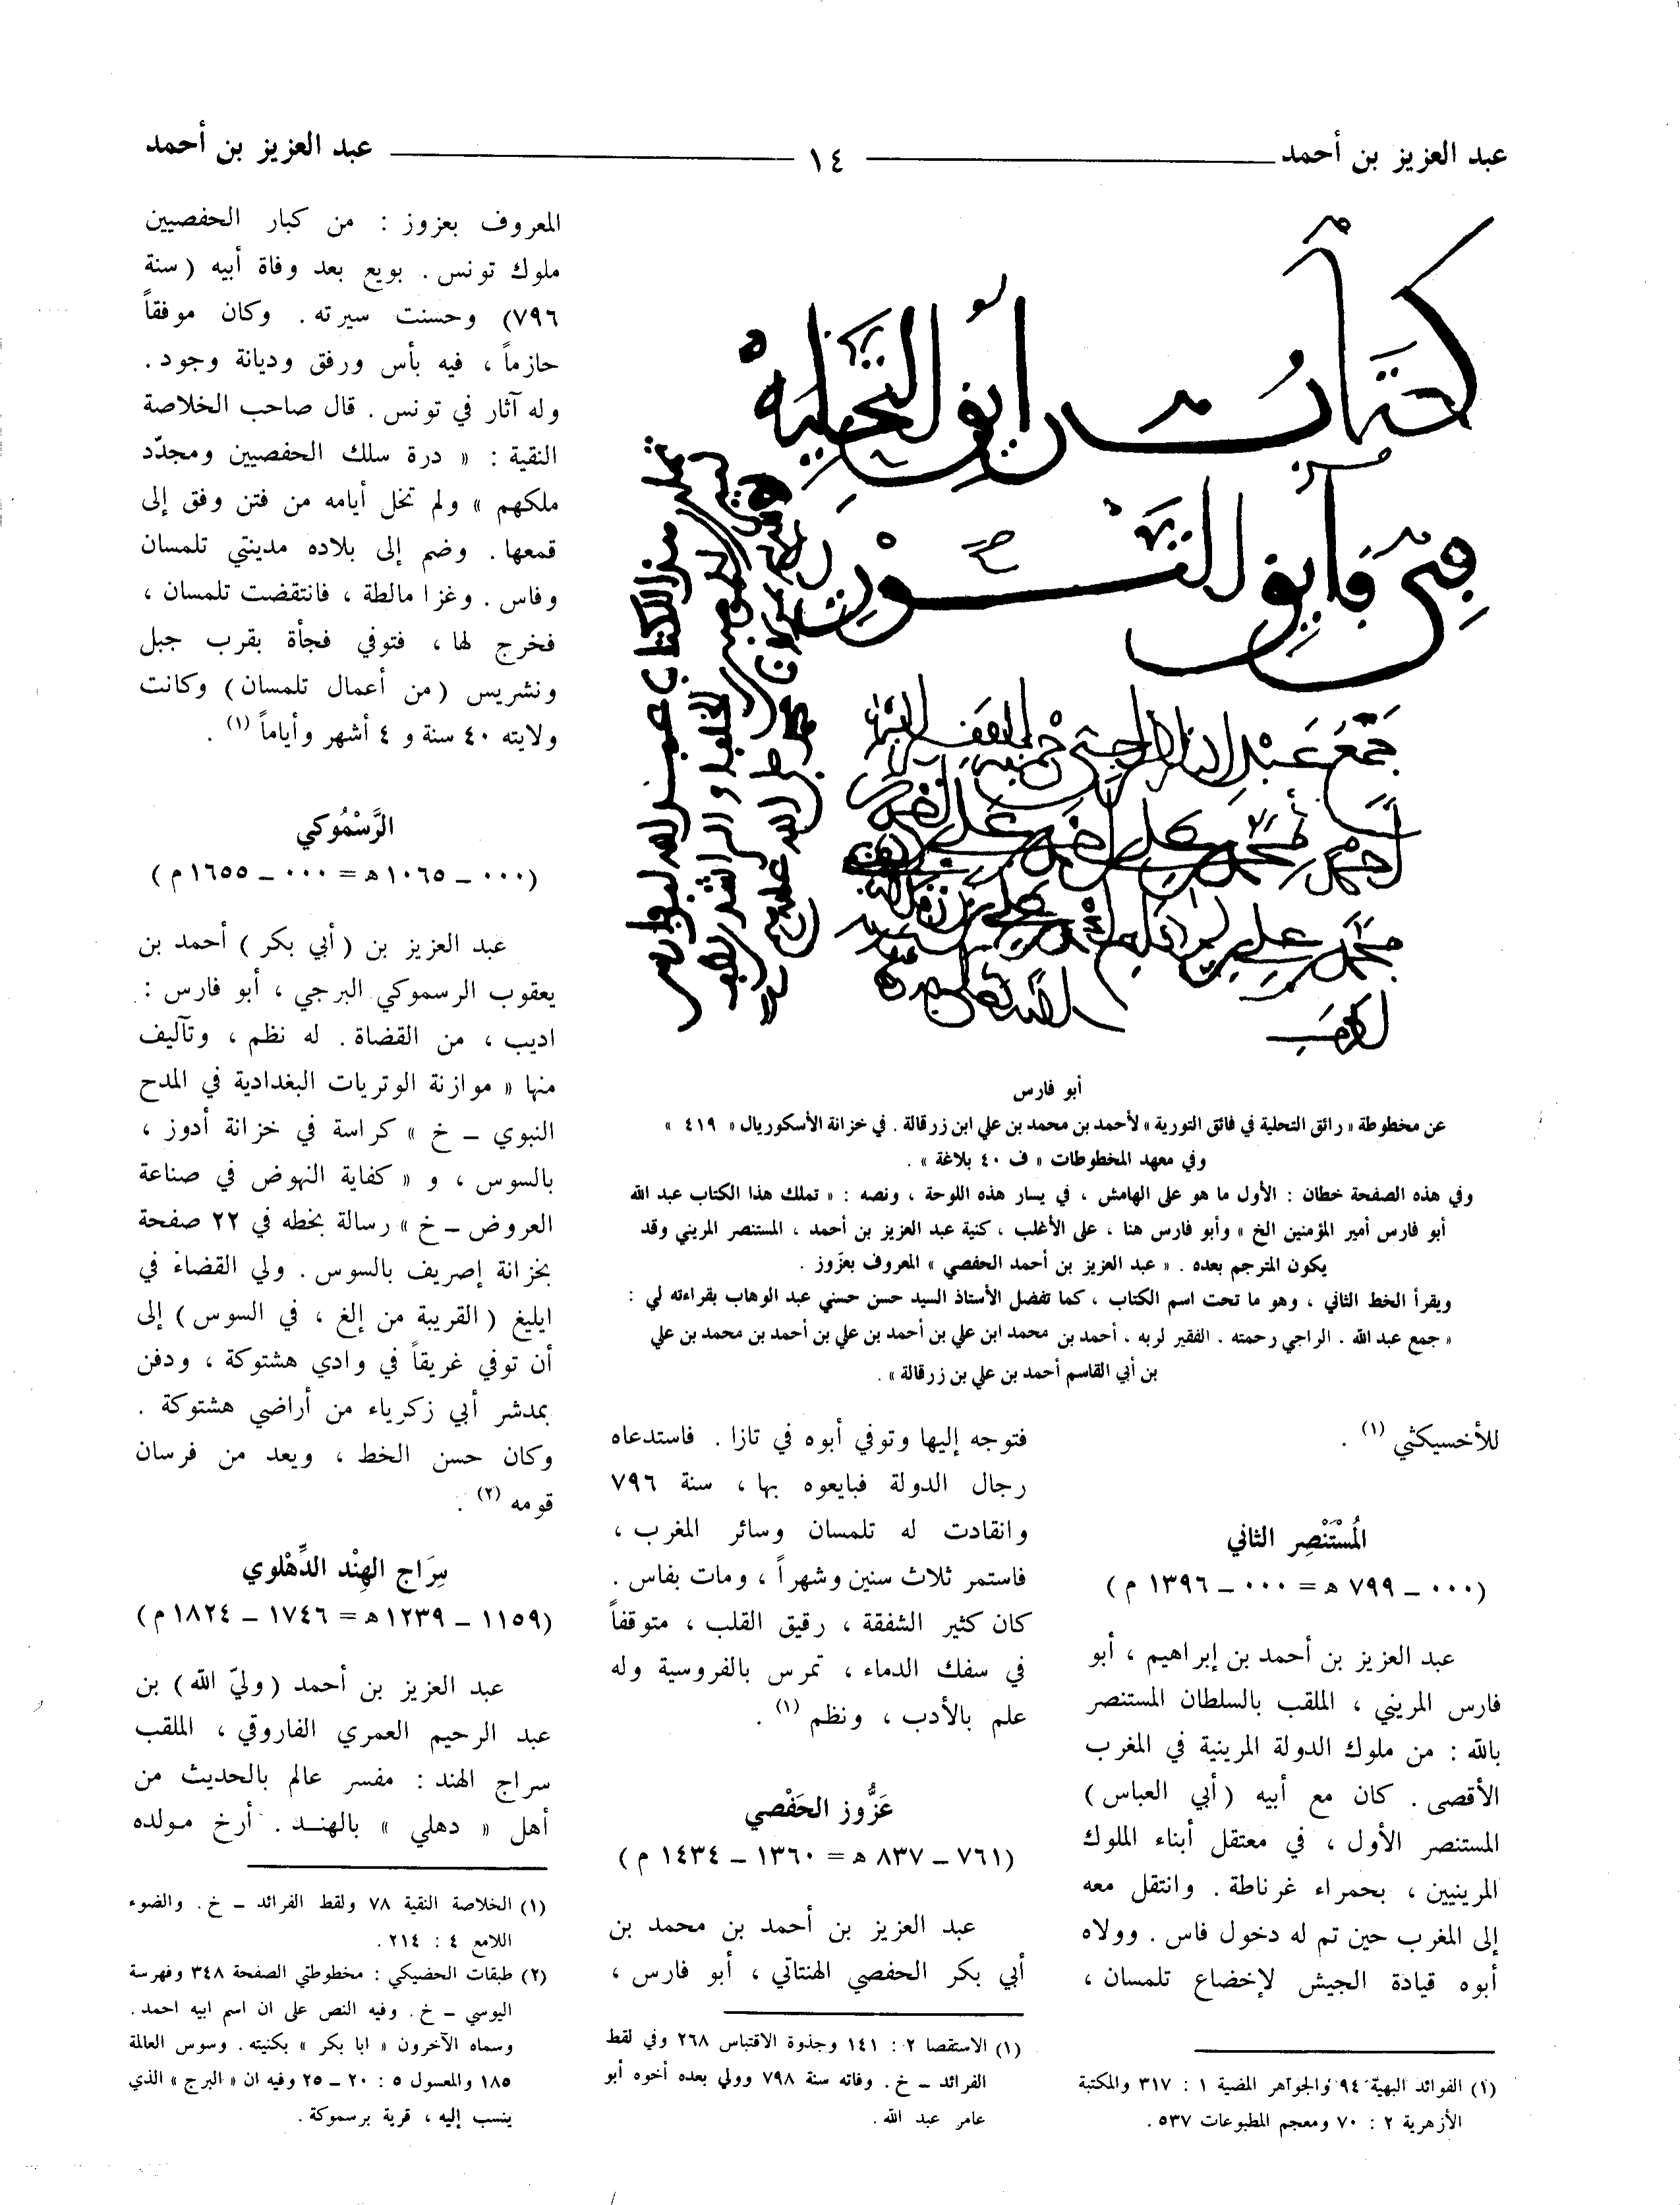 عبد العزيز بن أحمد
١٤
عبد العزيز بن أحمد
كتاب رايق التحلية
في فايق التورية
أبو فارس
عن مخطوطة « رائق التحلية في فائق التورية » لأحمد بن محمد بن علي ابن زرقالة . في خزانة الأسكوريال « ٤١٩ »
وفي معهد المخطوطات « ف ٤٠ بلاغة » .
وفي هذه الصفحة خطان : الأول ما هو على الهامش ، في يسار هذه اللوحة ، ونصه : « تملك هذا الكتاب عبد الله
أبو فارس أمير المؤمنين الخ » وأبو فارس هنا ، على الأغلب ، كنية عبد العزيز بن أحمد ، المستنصر المريني وقد
يكون المترجم بعده . « عبد العزيز بن أحمد الحفصي » المعروف بعزّوز .
ويقرأ الخط الثاني ، وهو ما تحت اسم الكتاب ، كما تفضل الأستاذ السيد حسن حسني عبد الوهاب بقراءته لي :
« جمع عبد الله . الراجي رحمته . الفقير لربه . أحمد بن محمد ابن علي بن أحمد بن علي بن أحمد بن محمد بن علي
بن أبي القاسم أحمد بن علي بن زرقالة » .
للأخسيكثي (١) .
المُسْتَنْصِر الثاني
(٠٠٠ ــ ٧٩٩ هـ = ٠٠٠ ــ ١٣٩٦ م)
عبد العزيز بن أحمد بن إبراهيم ، أبو
فارس المريني ، الملقب بالسلطان المستنصر
بالله : من ملوك الدولة المرينية في المغرب
الأقصى . كان مع أبيه (أبي العباس)
المستنصر الأول ، في معتقل أبناء الملوك
المرينيين ، بحمراء غرناطة . وانتقل معه
إلى المغرب حين تم له دخول فاس . وولاه
أبوه قيادة الجيش لإخضاع تلمسان ،
(١) الفوائد البهية ٩٤ والجواهر المضية ١ : ٣١٧ والمكتبة
الأزهرية ٢ : ٧٠ ومعجم المطبوعات ٥٣٧ .
فتوجه إليها وتوفي أبوه في تازا . فاستدعاه
رجال الدولة فبايعوه بها ، سنة ٧٩٦
وانقادت له تلمسان وسائر المغرب ،
فاستمر ثلاث سنين وشهراً ، ومات بفاس .
كان كثير الشفقة ، رقيق القلب ، متوقفاً
في سفك الدماء ، تمرس بالفروسية وله
علم بالأدب ، ونظم (١) .
عَزُّوز الحَفْصي
(٧٦١ ــ ٨٣٧ هـ = ١٣٦٠ ــ ١٤٣٤ م)
عبد العزيز بن أحمد بن محمد بن
أبي بكر الحفصي الهنتاتي ، أبو فارس ،
(١) الاستقصا ٢ : ١٤١ وجذوة الاقتباس ٢٦٨ وفي لقط
الفرائد ــ خ . وفاته سنة ٧٩٨ وولي بعده أخوه أبو
عامر عبد الله .
المعروف بعزوز : من كبار الحفصيين
ملوك تونس . بويع بعد وفاة أبيه (سنة
٧٩٦) وحسنت سيرته . وكان موفقاً
حازماً ، فيه بأس ورفق وديانة وجود .
وله آثار في تونس . قال صاحب الخلاصة
النقية : « درة سلك الحفصيين ومجدّد
ملكهم » ولم تخل أيامه من فتن وفق إلى
قمعها . وضم إلى بلاده مدينتي تلمسان
وفاس . وغزا مالطة ، فانتقضت تلمسان ،
فخرج لها ، فتوفي فجأة بقرب جبل
ونشريس (من أعمال تلمسان) وكانت
ولايته ٤٠ سنة و ٤ أشهر وأياماً (١) .
الرَّسْمُوكي
(٠٠٠ ــ ١٠٦٥هـ = ٠٠٠ ــ ١٦٥٥م)
عبد العزيز بن (أبي بكر) أحمد بن
يعقوب الرسموكي البرجي ، أبو فارس :
اديب ، من القضاة . له نظم ، وتآليف
منها « موازنة الوتريات البغدادية في المدح
النبوي ــ خ » كراسة في خزانة أدوز ،
بالسوس ، و « كفاية النهوض في صناعة
العروض ــ خ » رسالة بخطه في ٢٢ صفحة
بخزانة إصريف بالسوس . ولي القضاء في
ايليغ (القريبة من إلغ ، في السوس) إلى
أن توفي غريقاً في وادي هشتوكة ، ودفن
بمدشر أبي زكرياء من أراضي هشتوكة .
وكان حسن الخط ، ويعد من فرسان
قومه (٢) .
سِرَاج الهِنْد الدِّهْلوي
(١١٥٩ ــ ١٢٣٩هـ = ١٧٤٦ ــ ١٨٢٤م)
عبد العزيز بن أحمد (وليّ الله) بن
عبد الرحيم العمري الفاروقي ، الملقب
سراج الهند : مفسر عالم بالحديث من
أهل « دهلي » بالهنــد . أرخ مـولده
(١) الخلاصة النقية ٧٨ ولقط الفرائد ــ خ . والضوء
اللامع ٤ : ٢١٤ .
(٢) طبقات الحضيكي : مخطوطتي الصفحة ٣٤٨ وفهرسة
اليوسي ــ خ . وفيه النص على ان اسم ابيه احمد .
وسماه الآخرون « ابا بكر » بكنيته . وسوس العالمة
١٨٥ والمعسول ٥ : ٢٠ ــ ٢٥ وفيه ان « البرج » الذي
ينسب إليه ، قرية برسموكة .